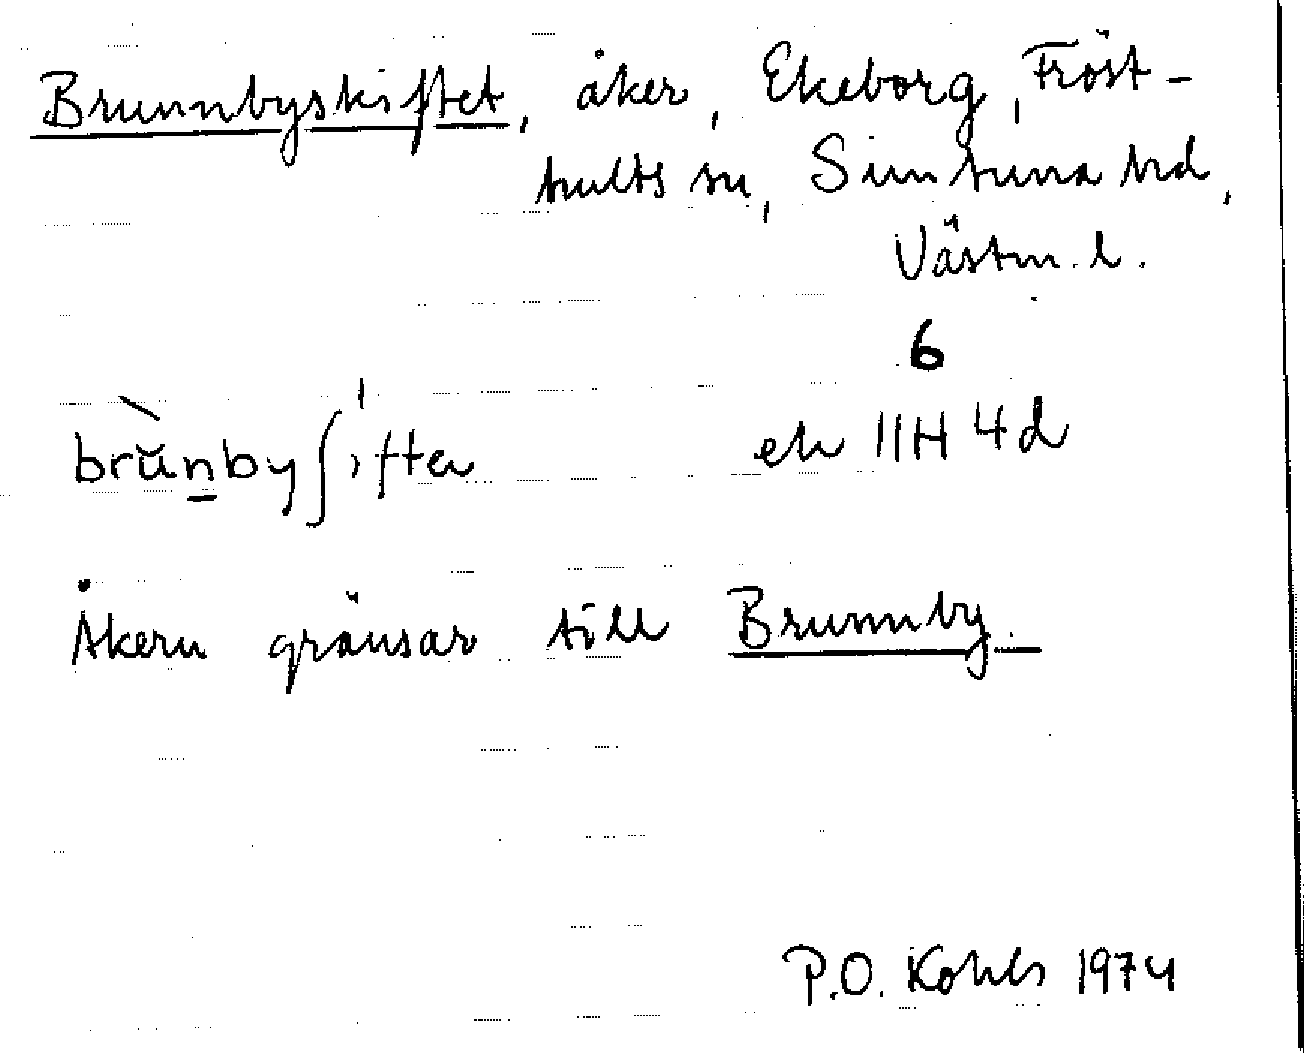 Brunnbyskiftet, åker, Ekeborg, Fröst-
hults sn, Simtuna hd,
Västm. l.
6
brùn̲by∫ifta ek 11H 4d
Åkern gränsar till Brunnby.
P.O. Kohls 1974